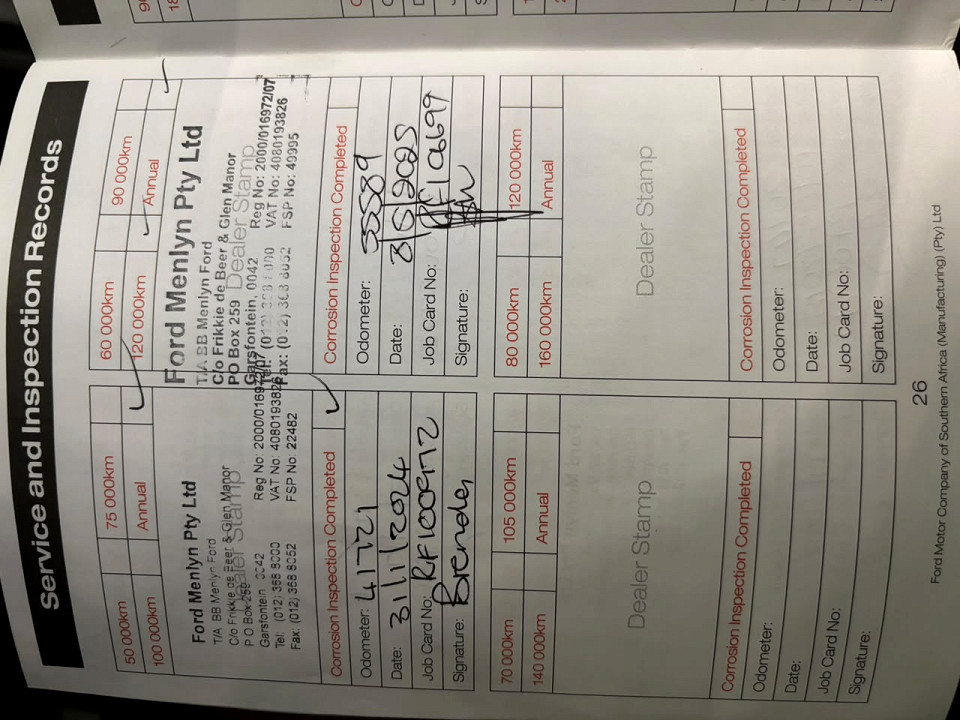 Service and Inspection Records
50 000km
75 000km
100 000km
Annual
Dealer Stamp
Ford Menlyn Pty Ltd
T/A BB Menlyn Ford
C/o Frikkie de Beer & Glen Manor
P O Box 259
Garsfontein 0042
Tel: (012) 368 8000
Fax: (012) 368 8052
Reg No: 2000/016972/07
VAT No: 4080193826
FSP No: 22482
Corrosion Inspection Completed
Odometer: 41721
Date: 31/1/2024
Job Card No: RF1009172
Signature: Brenden
60 000km
90 000km
120 000km
Annual
Ford Menlyn Pty Ltd
T/A BB Menlyn Ford
C/o Frikkie de Beer & Glen Manor
PO Box 259 Dealer Stamp
Garsfontein, 0042
Reg No: 2000/016972/07
VAT No: 4080193826
FSP No: 49995
Fax: (012) 368 8052
Corrosion Inspection Completed
Odometer:
Date:
Job Card No:
Signature:
70 000km
105 000km
140 000km
Annual
Dealer Stamp
Corrosion Inspection Completed
Odometer:
Date:
Job Card No:
Signature:
80 000km
120 000km
160 000km
Annual
Dealer Stamp
Corrosion Inspection Completed
Odometer:
Date:
Job Card No:
Signature:
26
Ford Motor Company of Southern Africa (Manufacturing) (Pty) Ltd